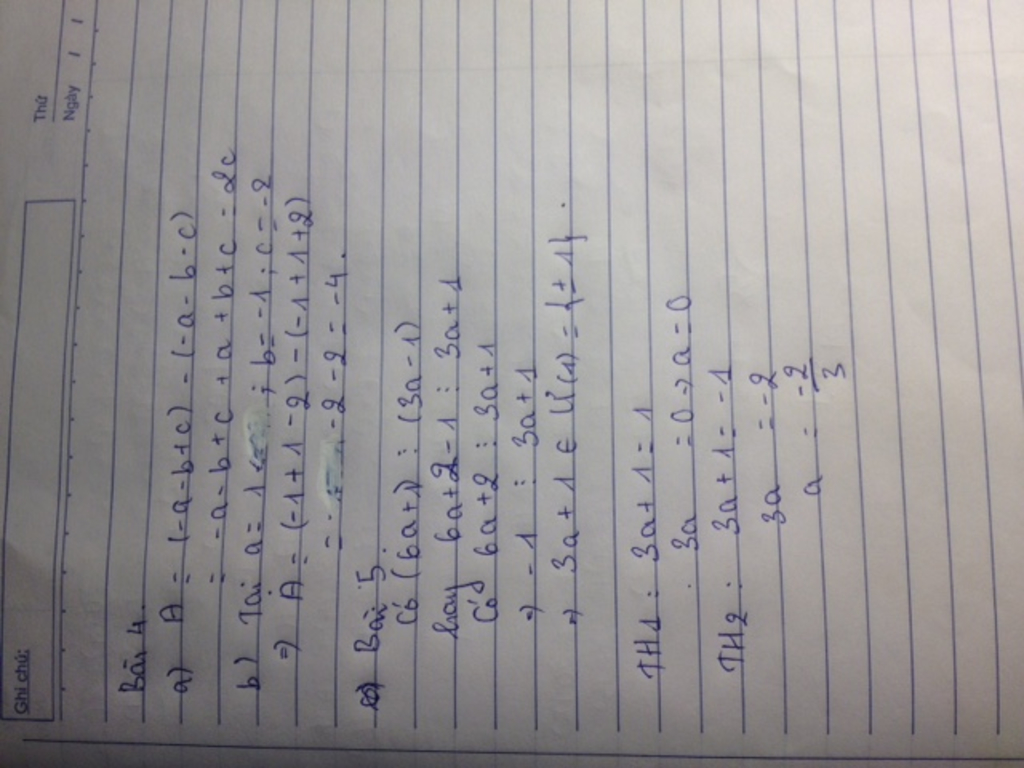 Ghi chú:
Thứ
Ngày / /
Bài 4.
a) A = (-a-b+c) - (-a-b-c)
= -a-b+c +a+b+c = 2c
b) Tại a = 1 ; b = -1 ; c = -2
=) A = (-1+1-2) - (-1+1+2)
= -2 - 2 = -4.
Bài 5.
Có (6a+1) ⋮ (3a-1)
hay 6a+2-1 ⋮ 3a+1
Có 6a+2 ⋮ 3a+1
=) -1 ⋮ 3a+1
=) 3a+1 ∈ Ư(1) = {±1}.
TH1: 3a+1 = 1
3a = 0 → a = 0
TH2: 3a+1 = -1
3a = -2
a = -2/3